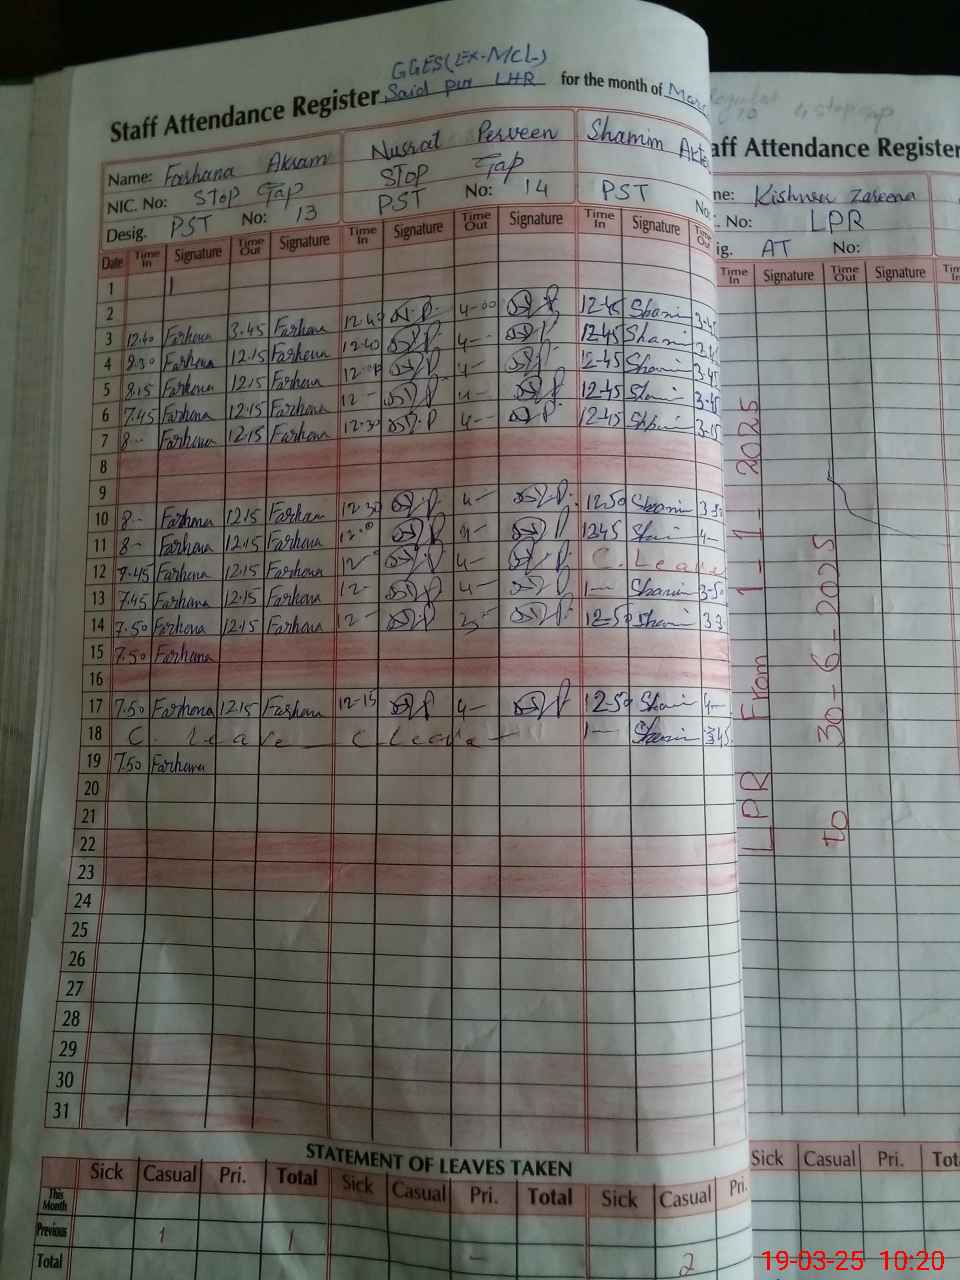 GGES(Ex-MCL)
Staff Attendance Register Said pur LHR for the month of Marc
Name: Farhana Akram Nusrat Perveen Shamim Akte
NIC. No: STOP Gap STOP Gap
Desig. PST No: 13 PST No: 14 PST No:
Date Time In Signature Time Out Signature Time In Signature Time Out Signature Time In Signature Time Out
1
2
3 12.40 Farhana 3.45 Farhana 12.40 4-00 12-45 Shamim 3-45
4 8.30 Farhana 12.15 Farhana 12.40 4- 12-45 Shamim
5 8.15 Farhana 12.15 Farhana 4- 12-45 Shamim 3-45
6 7.45 Farhana 12.15 Farhana 12- 4- 12-45 Shamim 3-45
7 8-- Farhana 12.15 Farhana 12-30 4- 12-45 Shamim 3-15
8
9
10 8-- Farhana 12.15 Farhana 12-30 4- 12.50 Shamim
11 8- Farhana 12.15 Farhana 1245 Shamim 4-
12 7.45 Farhana 12.15 Farhana 12- 4- C. Leave
13 7.45 Farhana 12.15 Farhana 12- 4- 1- Shamim 3-50
14 7.50 Farhana 12.15 Farhana 12- 12-50 Shamim
15 7.50 Farhana
16
17 7.50 Farhana 12.15 Farhana 12-15 4- 12-50 Shamim 4-
18 C. Leave C Leave 1- Shamim 3.45
19 7.50 Farhana
20
21
22
23
24
25
26
27
28
29
30
31
STATEMENT OF LEAVES TAKEN
Sick Casual Pri. Total Sick Casual Pri. Total Sick Casual Pri.
This Month
Previous 1 1
Total - 2
4 stop gap
aff Attendance Register
ne: Kishwar Zareena
. No: LPR
ig. AT No:
Time In Signature Time Out Signature Time In
LPR From 1-1-2025
to 30-6-2025
Sick Casual Pri. Tot
19-03-25 10:20